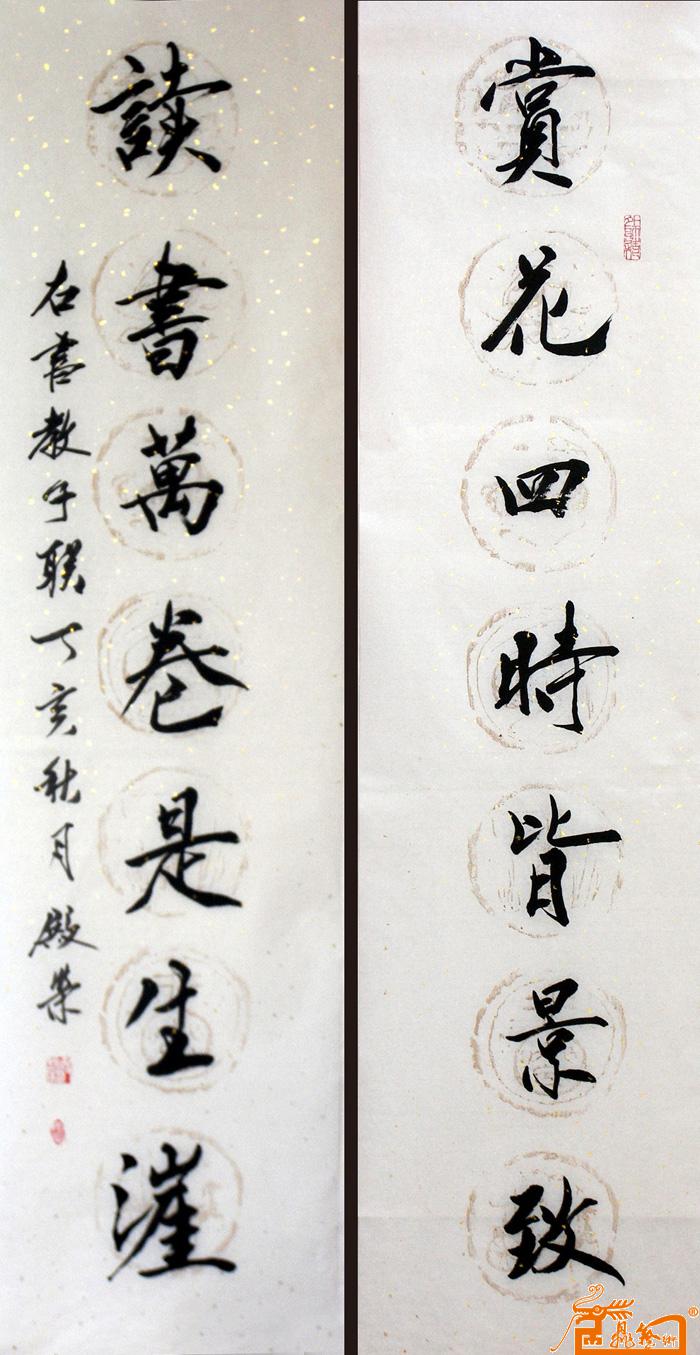 賞花四時皆景致
讀書萬卷是生涯
右書教子联丁亥秋月殿榮